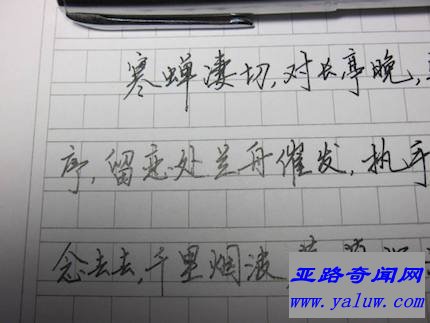 寒蝉凄切,对长亭晚,
序,留恋处兰舟催发,执手
念去去,千里烟波,
亚路奇闻网
www.yaluw.com